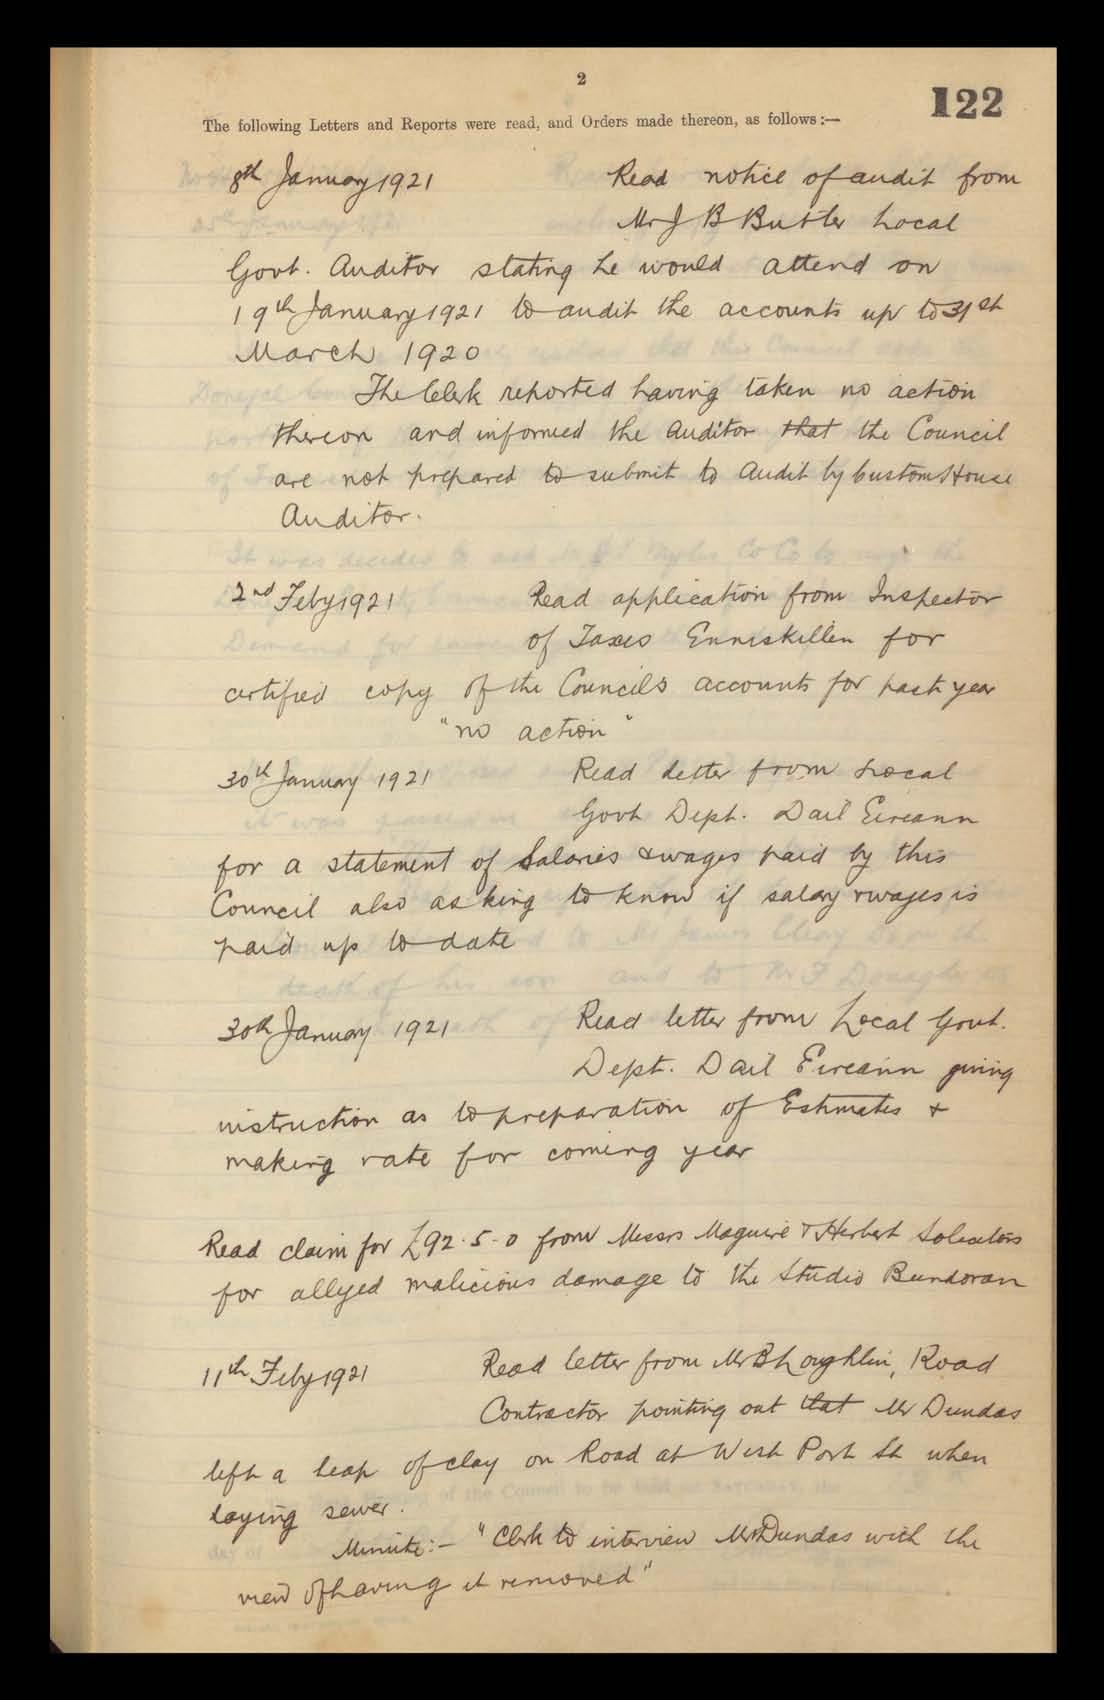 2
122
The following Letters and Reports were read, and Orders made thereon, as follows :—
8th January 1921 Read notice of audit from
Mr J B Butler Local
Govt. Auditor stating he would attend on
19th January 1921 to audit the accounts up to 31st
March 1920
The Clerk reported having taken no action
thereon and informed the Auditor that the Council
are not prepared to submit to Audit by Custom House
Auditor.
2nd Feby 1921 Read application from Inspector
of Taxes Enniskillen for
certified copy of the Councils accounts for past year
"no action"
30th January 1921 Read letter from Local
Govt Dept. Dail Eireann
for a statement of Salaries & wages paid by this
Council also asking to know if salary & wages is
paid up to date
30th January 1921 Read letter from Local Govt.
Dept. Dail Eireann giving
instruction as to preparation of Estimates &
making rate for coming year
Read claim for £92.5-0 from Messrs Maguire & Herbert Solicitors
for alleged malicious damage to the Studio Bundoran
11th Feby 1921 Read letter from Mr B Loughlin, Road
Contractor pointing out that Mr Dundas
left a heap of clay on Road at West Port St when
laying sewer.
Minute:- "Clerk to interview Mr Dundas with the
view of having it removed"